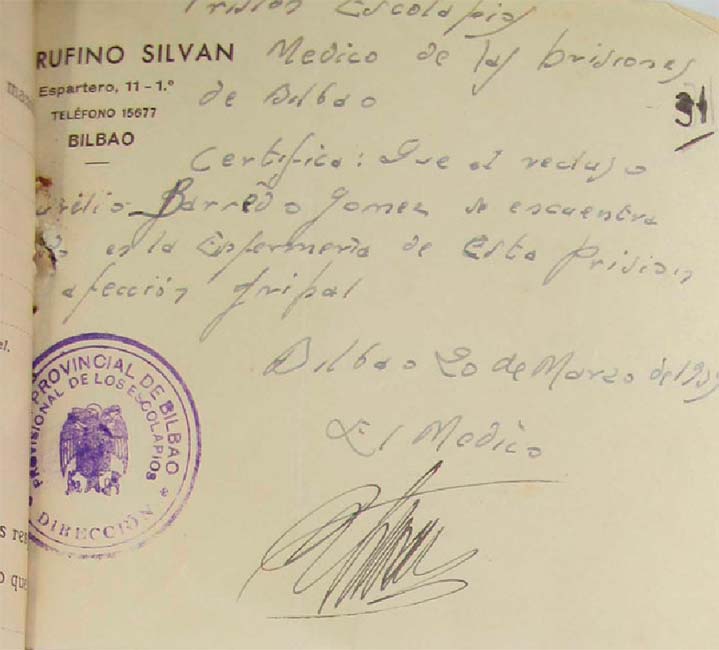 Prision Escolapios
RUFINO SILVAN
Espartero, 11 - 1.º
TELÉFONO 15677
BILBAO
Medico de las prisiones
de Bilbao
31
Certifica: Que el recluso
Barredo Gomez se encuentra
en la Enfermeria de Esta Prision
afección gripal
Bilbao 20 de Marzo de 19
El Medico
PROVINCIAL DE BILBAO
PROVISIONAL DE LOS ESCOLAPIOS
DIRECCIÓN